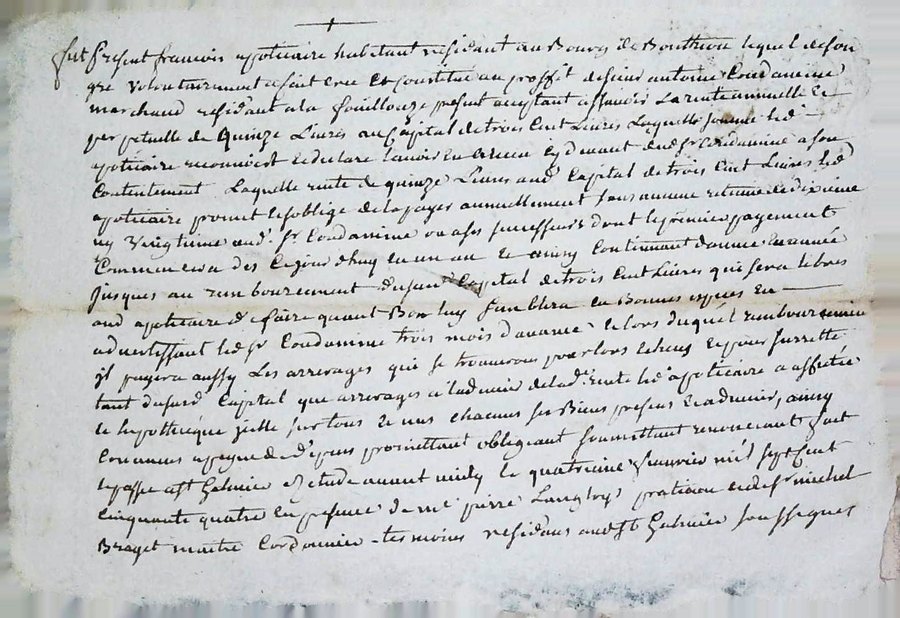 fut present francois apoticaire habitant residant au Bourg de Bouthéon lequel de son
gre volontairement a fait cree et constitue au proffit de sieur antoine Coudamine
marchand residant a la fouillouze present acceptant assavoir la rente annuelle et
perpetuelle de quinze Livres au Capital de trois Cent Livres Laquelle somme led
apoticaire reconnoist et declare lavoir eu et receu cy devant dud Sr Coudamine a son
Contentement Laquelle rente de quinze Livres aud Capital de trois Cent Livres led
apoticaire promet et soblige de la payer annuellement sans aucune retenue de dixieme
ny vingtieme aud. Sr Coudamine ou a ses successeurs dont le premier payement
Commencera des Cejourdhuy en un an et ainsy Continuant dannee en année
jusques au remboursement dususd Capital de trois Cent Livres qui sera libres
aud apoticaire de faire quant Bon luy semblera en bonnes especes en
advertissant led Sr Coudamine trois mois davance et lors duquel remboursement
il payera aussy Les arrerages qui se trouveront pour lors echeus et pour surretté
tant dususd Capital que arrerages a ladvenir de lad. rente led apoticaire a affecté
et hypothéqué tous et uns chacuns ses Biens presens et advenir, ainsy
Convenus a peyne de depens promettant obligeant soumettant renoncant fait
et passe a St Galmier etude avant midy le quatrieme janvier mil sept Cent
Cinquante quatre en presence de me pierre Langlois praticien et de Sr michel
Braget maitre Cordonnier temoins residans aud St Galmier soussignes